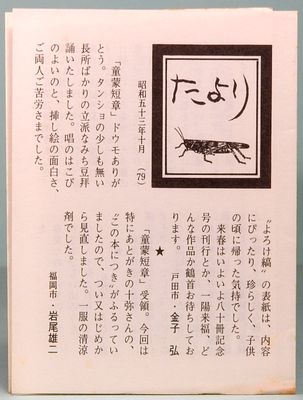 たより
昭和五十三年十月 (79)
「童蒙短章」ドウモありが
とう。タンショの少しも無い
長所ばかりの立派なみち豆拝
誦いたしました。唱のはこび
のよいのと、挿し絵の面白さ、
ご両人ご苦労さまでした。
〝よろけ縞〟の表紙は、内容
にぴったり、珍らしく、子供
の頃に帰った気持でした。
来春はいよいよ八十冊記念
号の刊行とか、一陽来福、ど
んな作品か鶴首お待ちしてお
ります。
戸田市・金子 弘
★
「童蒙短章」受領。今回は
特にあとがきの十弥さんの、
〝この本につき〟がふるってい
ましたので、つい又はじめか
ら見直しました。一服の清涼
剤でした。
福岡市・岩尾雄二